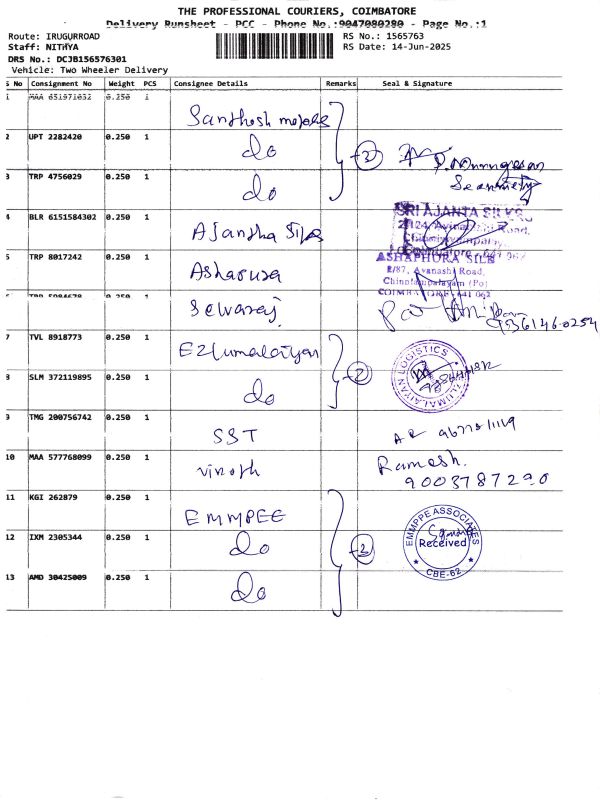 THE PROFESSIONAL COURIERS, COIMBATORE
Delivery Runsheet - PCC - Phone No.:9047080280 - Page No.:1
Route: IRUGURROAD
RS No.: 1565763
Staff: NITHYA
RS Date: 14-Jun-2025
DRS No.: DCJB156576301
Vehicle: Two Wheeler Delivery
S No Consignment No Weight PCS Consignee Details Remarks Seal & Signature
1 MAA 651971032 0.250 1
Santhosh
2 UPT 2282420 0.250 1 do 3
3 TRP 4756029 0.250 1 do
4 BLR 6151584302 0.250 1 Ajantha Silks
SRI AJANTA SILKS
5 TRP 8017242 0.250 1 Asharura
ASHAPHURA SILK
8/87, Avanashi Road,
Chinniampalayam (Po)
COIMBATORE-641 062
0.250 1 Selvaraj
7 TVL 8918773 0.250 1 Ezhumalaiyan 2
EZHUMALAIYAN LOGISTICS
8 SLM 372119895 0.250 1 do
9 TMG 200756742 0.250 1 SST
10 MAA 577768099 0.250 1 Vinoth
Ramesh.
9003787290
11 KGI 262879 0.250 1 EMMPEE
12 IXM 2305344 0.250 1 do 2
EMMPPE ASSOCIATES
Received
CBE-62
13 AMD 30425009 0.250 1 do